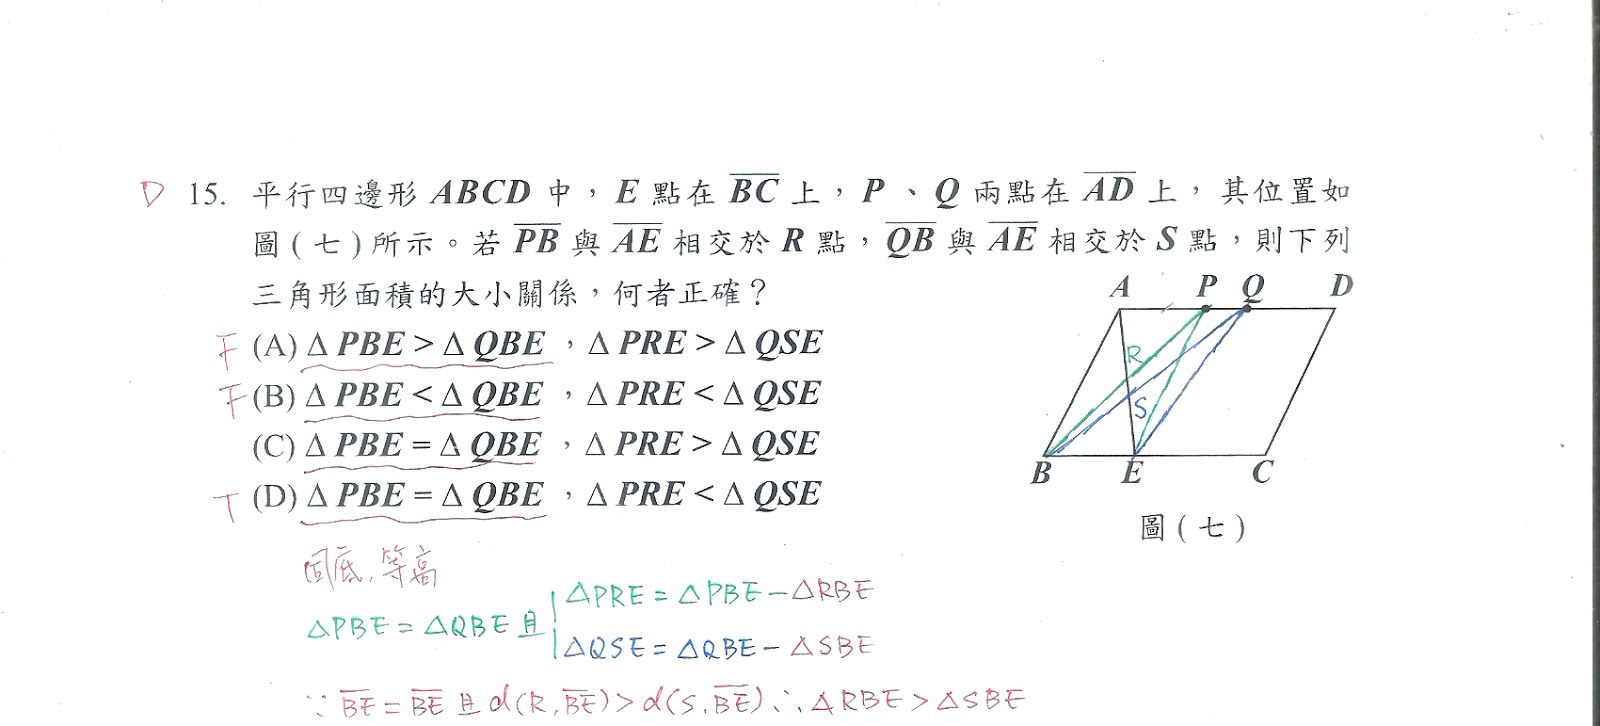 D 15. 平行四邊形 ABCD 中，E 點在 BC 上，P、Q 兩點在 AD 上，其位置如
圖(七)所示。若 PB 與 AE 相交於 R 點，QB 與 AE 相交於 S 點，則下列
三角形面積的大小關係，何者正確？
F (A) △PBE > △QBE ，△PRE > △QSE
F (B) △PBE < △QBE ，△PRE < △QSE
(C) △PBE = △QBE ，△PRE > △QSE
T (D) △PBE = △QBE ，△PRE < △QSE
A P Q D
R
S
B E C
圖(七)
同底,等高
△PRE = △PBE - △RBE
△PBE = △QBE 且
△QSE = △QBE - △SBE
∵ BE = BE 且 d(R, BE) > d(S, BE) ∴ △RBE > △SBE